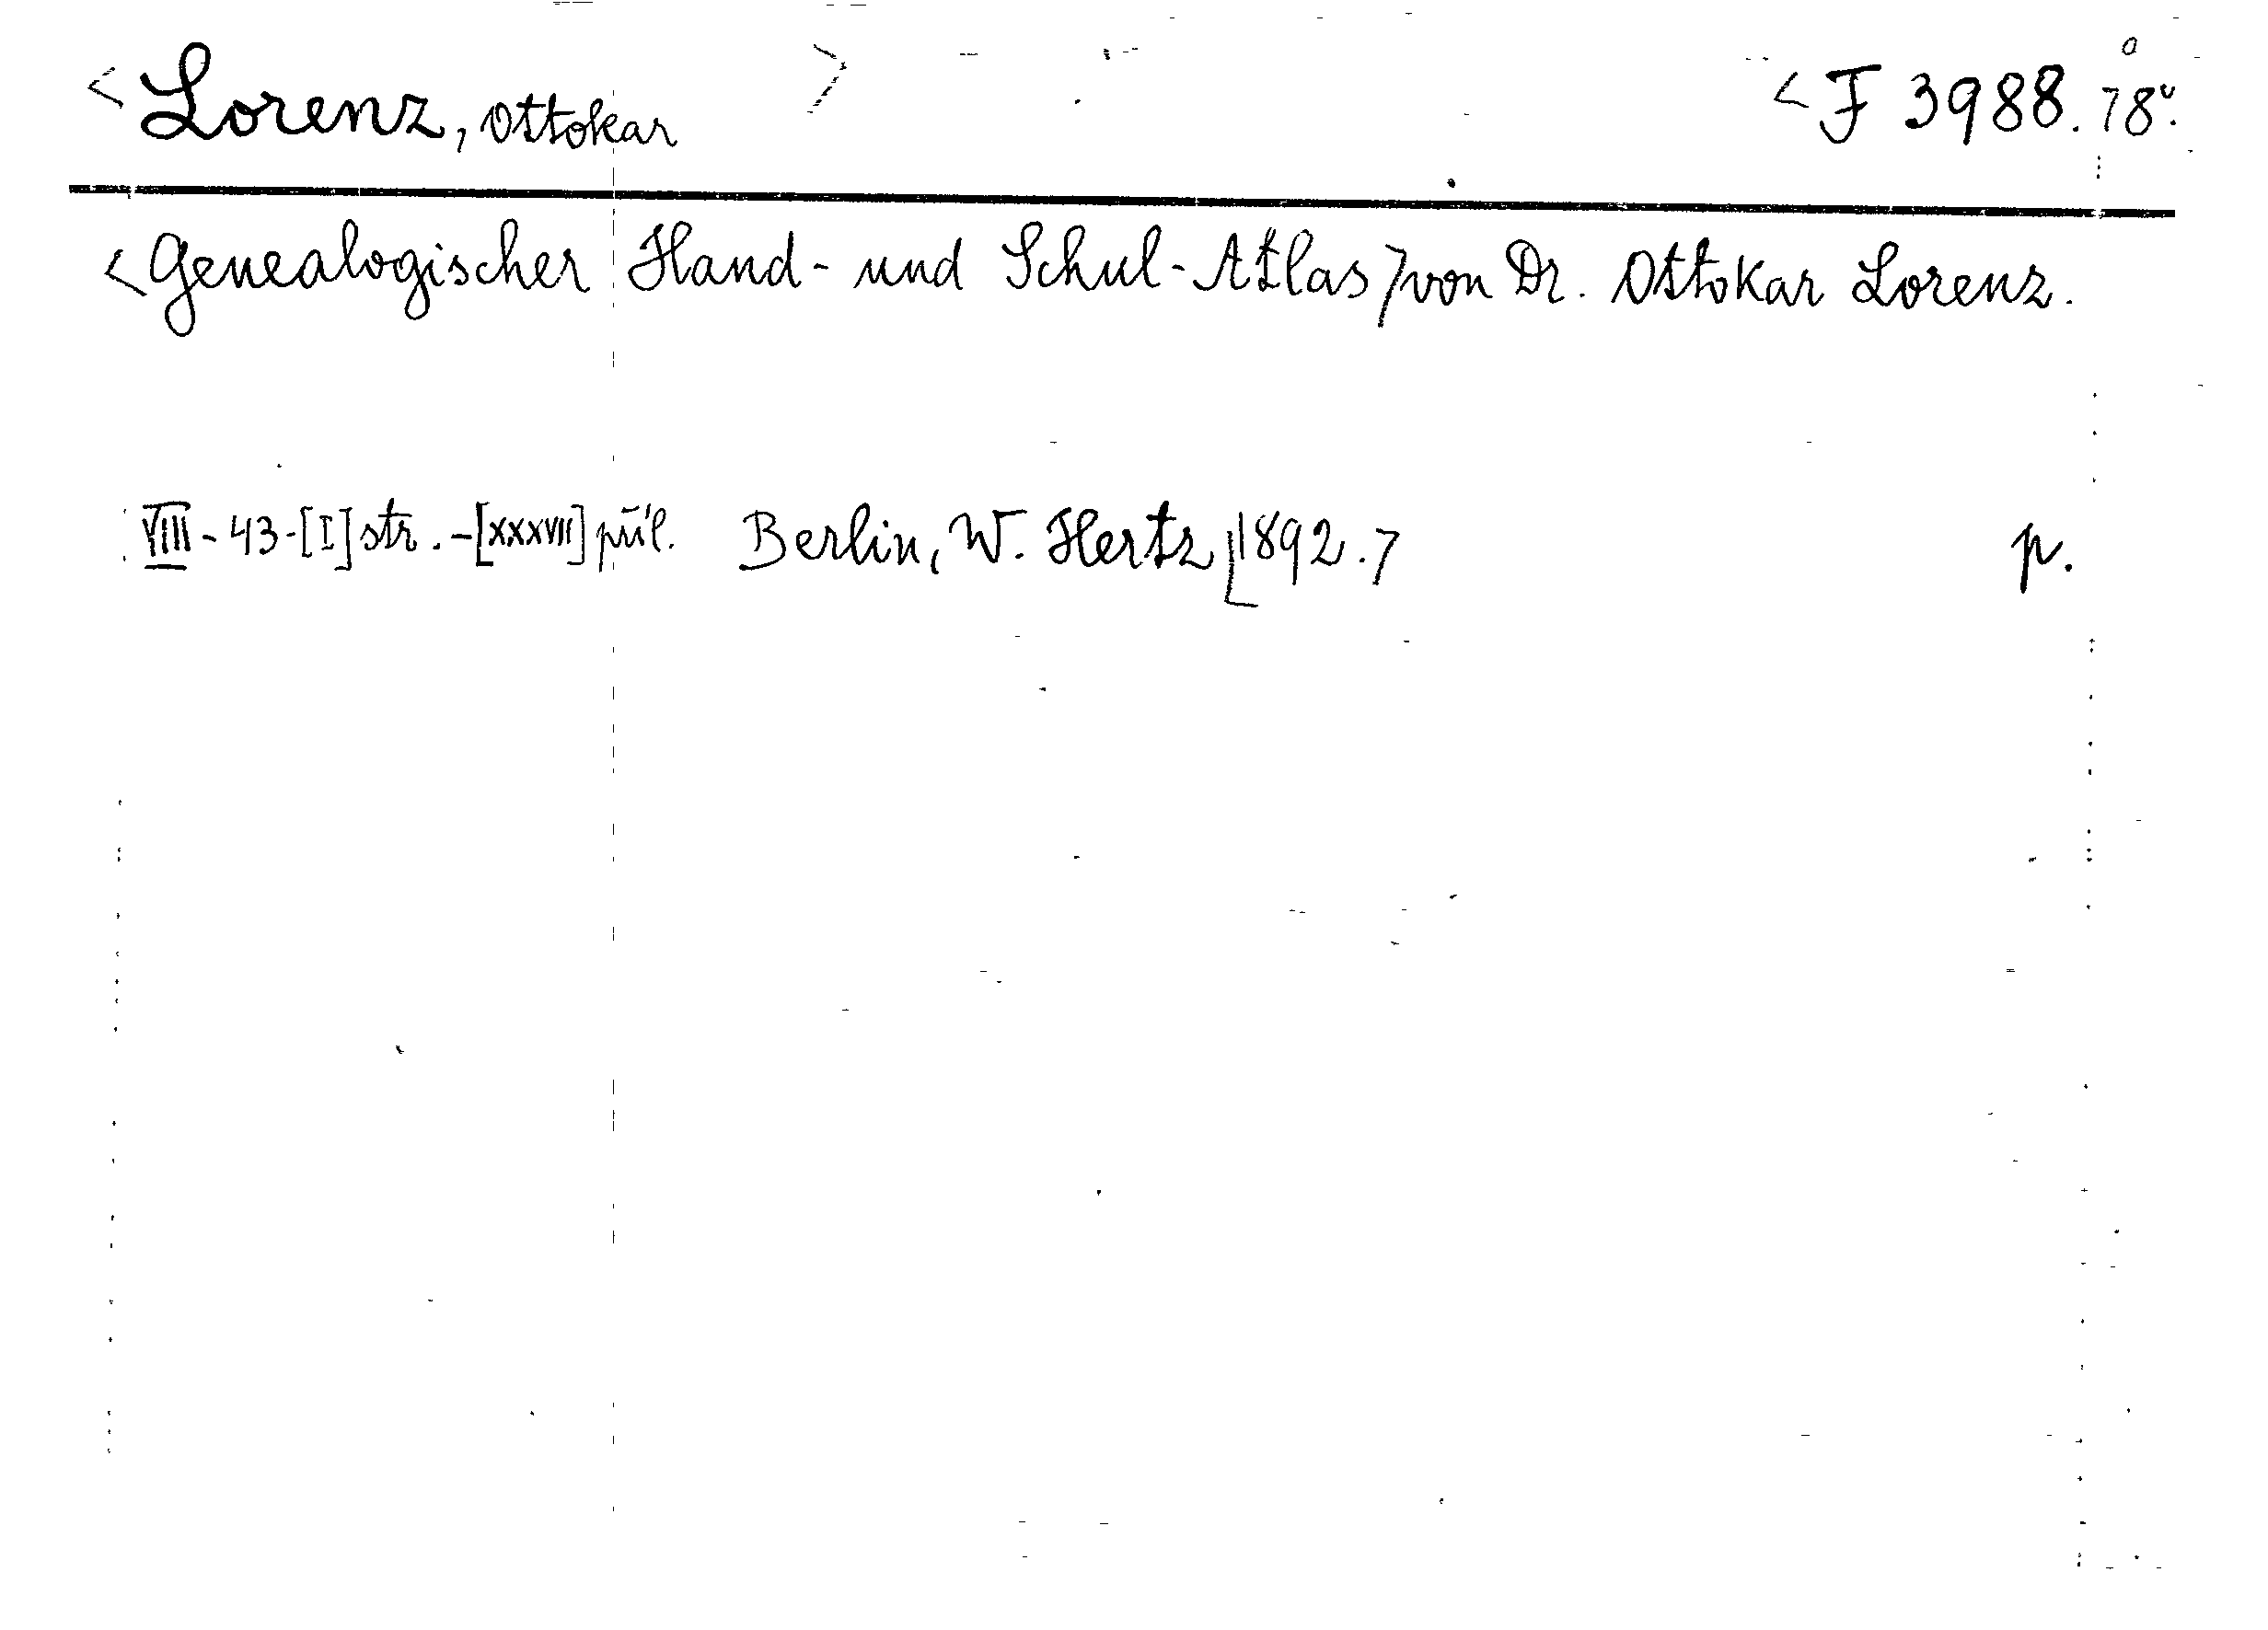 <Lorenz, Ottokar> <F 3988. 78º.
<Genealogischer Hand- und Schul-Atlas> von Dr. Ottokar Lorenz.
VIII - 43 - [I] str. - [XXXVII] půl. Berlin, W. Hertz [1892.> p.